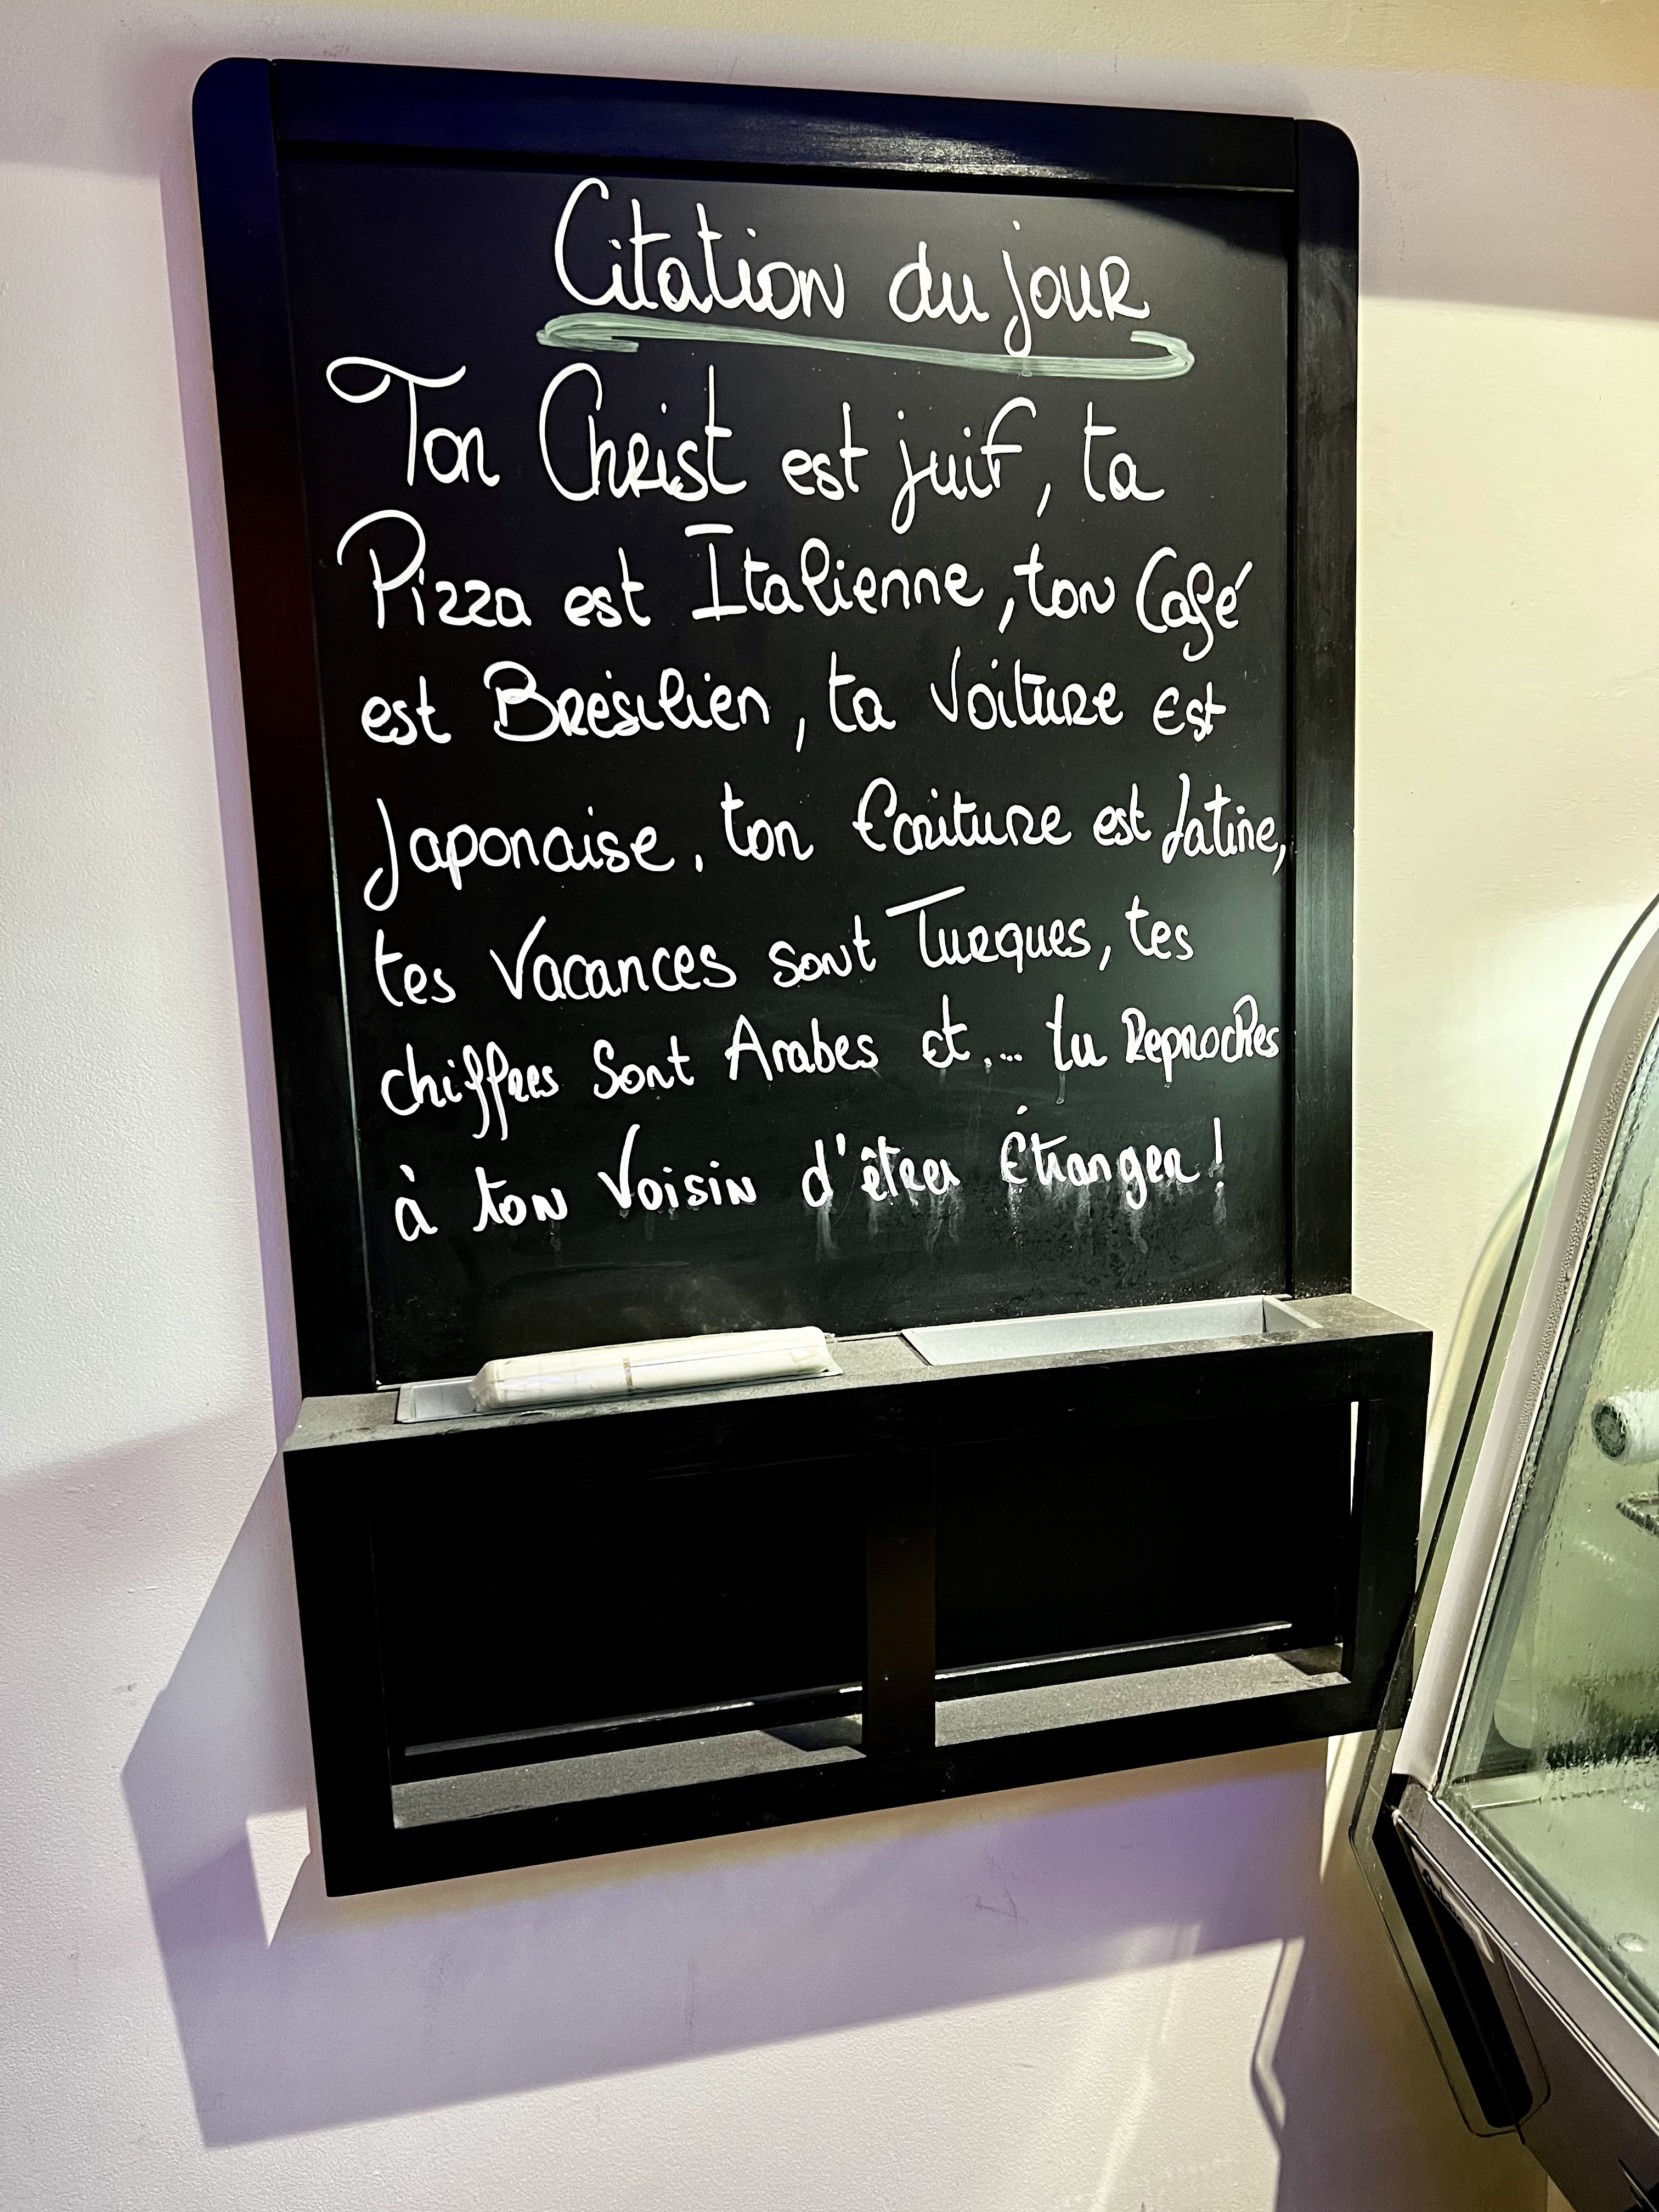 Citation du jour
Ton Christ est juif, ta
Pizza est Italienne, ton Café
est Brésilien, ta Voiture est
Japonaise, ton Ecriture est latine,
tes Vacances sont Turques, tes
chiffres Sont Arabes et... tu Reproches
à ton Voisin d'être Étranger !